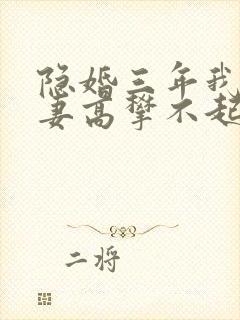 隐婚三年我
妻高攀不起
二将